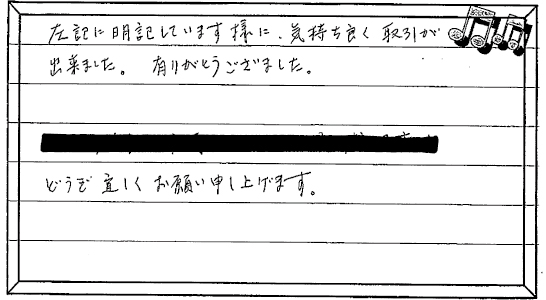 左記に明記しています様に、気持ち良く取引が
出来ました。 有りがとうございました。
どうぞ宜しくお願い申し上げます。